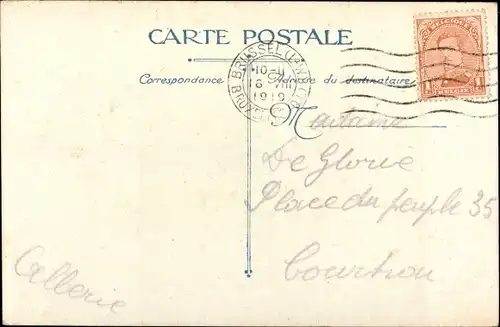 CARTE POSTALE
Correspondance
Adresse du destinataire
BRUSSEL
BRUXELLES
10-11
VIII
1919
BELGIQUE
1 1
BELGIË
Madame
De Glorie
Place du peuple 35
Courtrai